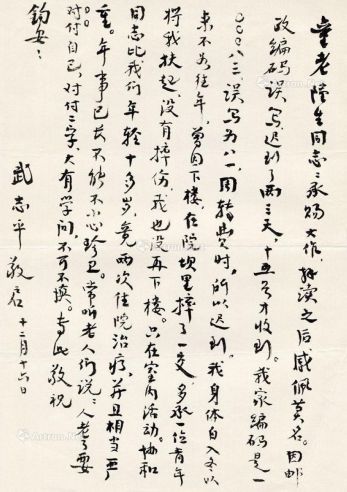 童老隆全同志:承赐大作,拜读之后,感佩莫名。因邮
政编码误写,迟到了两三天,十五号才收到。我家编码是一
〇〇〇八三,误写为八一,周转费时,所以迟到。我身体自入冬以
来不如往年,曾因下楼,在院坝里摔了一交,多承一位青年
将我扶起,没有摔伤,我也没再下楼。只在室内活动。协和
同志比我们年轻十多岁,竟两次住院治疗,并且相当严
重。年事已长不能不小心珍卫。常听老人们说:人老了要
对付自己,对付二字,大有学问,不可不慎。专此敬祝
钧安:
武志平敬启 十二月十六日